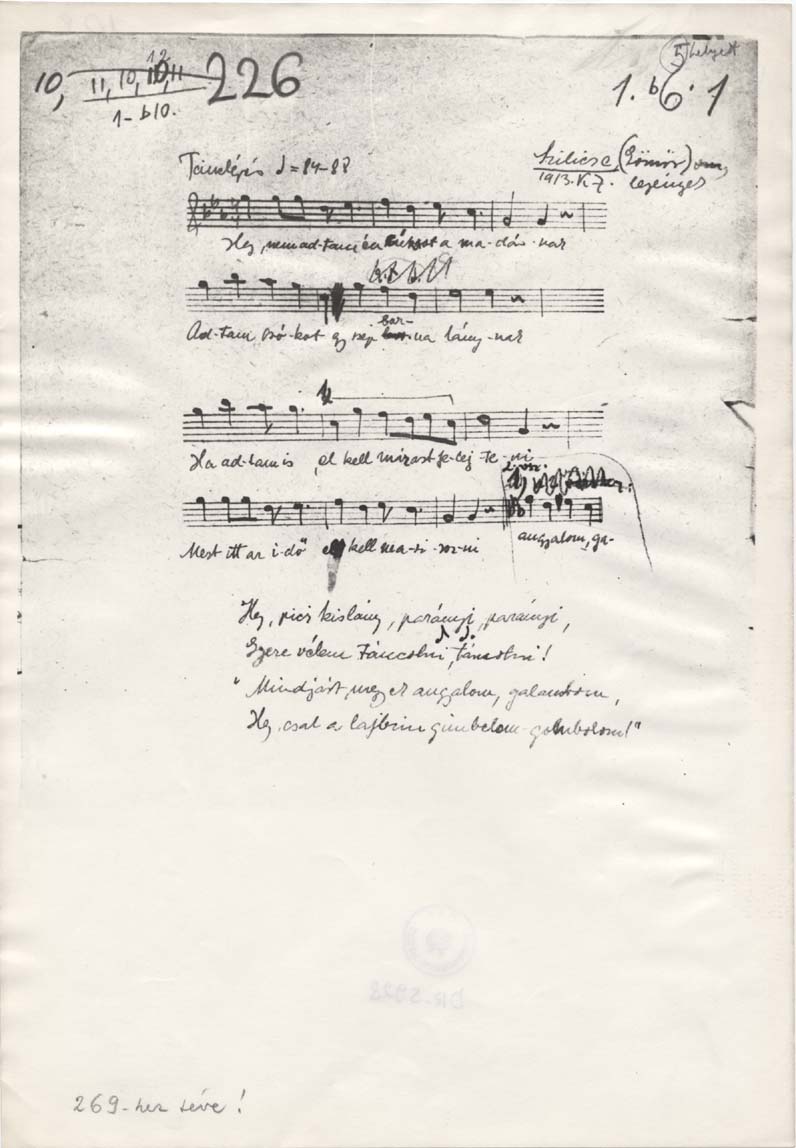 10, 11, 10, 10, 11 226
12
1-b10.
helyett
1. b6. 1
Tánclépés = 84-88
Szilicse (Gömör)
1913. V. 7. legényes
Hej, nem ad-tam én a ma-dár-nak
Ad-tam csó-kot egy szép bar-na lány-nak
Ha ad-tam is, el kell mirast fe-lej-te-ni
2. vsz.:
Mest itt az i-dő el kell ma-si-roz-ni
angyalom, ga-
Hej, pici kislány, parányi, parányi,
Gyere vélem táncolni, táncolni!
"Mindjárt megyek angyalom, galambom,
Hej, csak a lajbim gimbelom-gombolom!"
DR. 5978
269-hez téve!